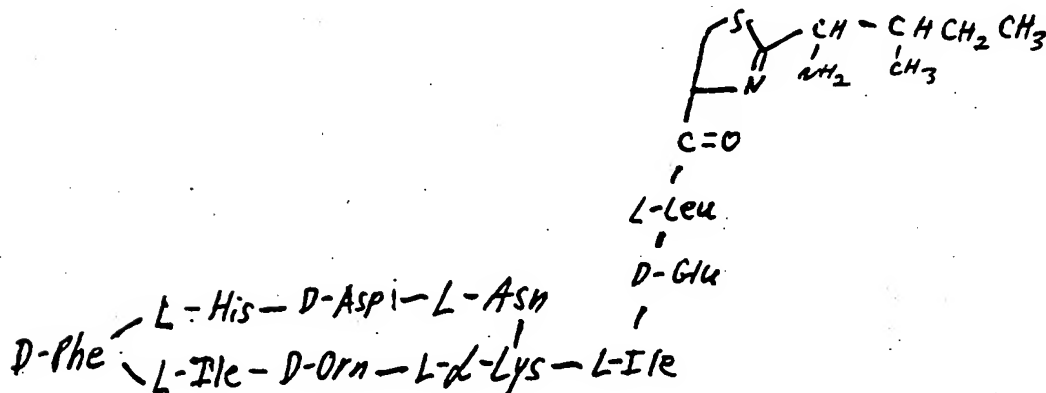 S CH - CH CH2 CH3
N NH2 CH3
C=O
L-Leu
D-Glu
L-His-D-Aspi-L-Asn
D-Phe
L-Ile-D-Orn-L-α-Lys-L-Ile